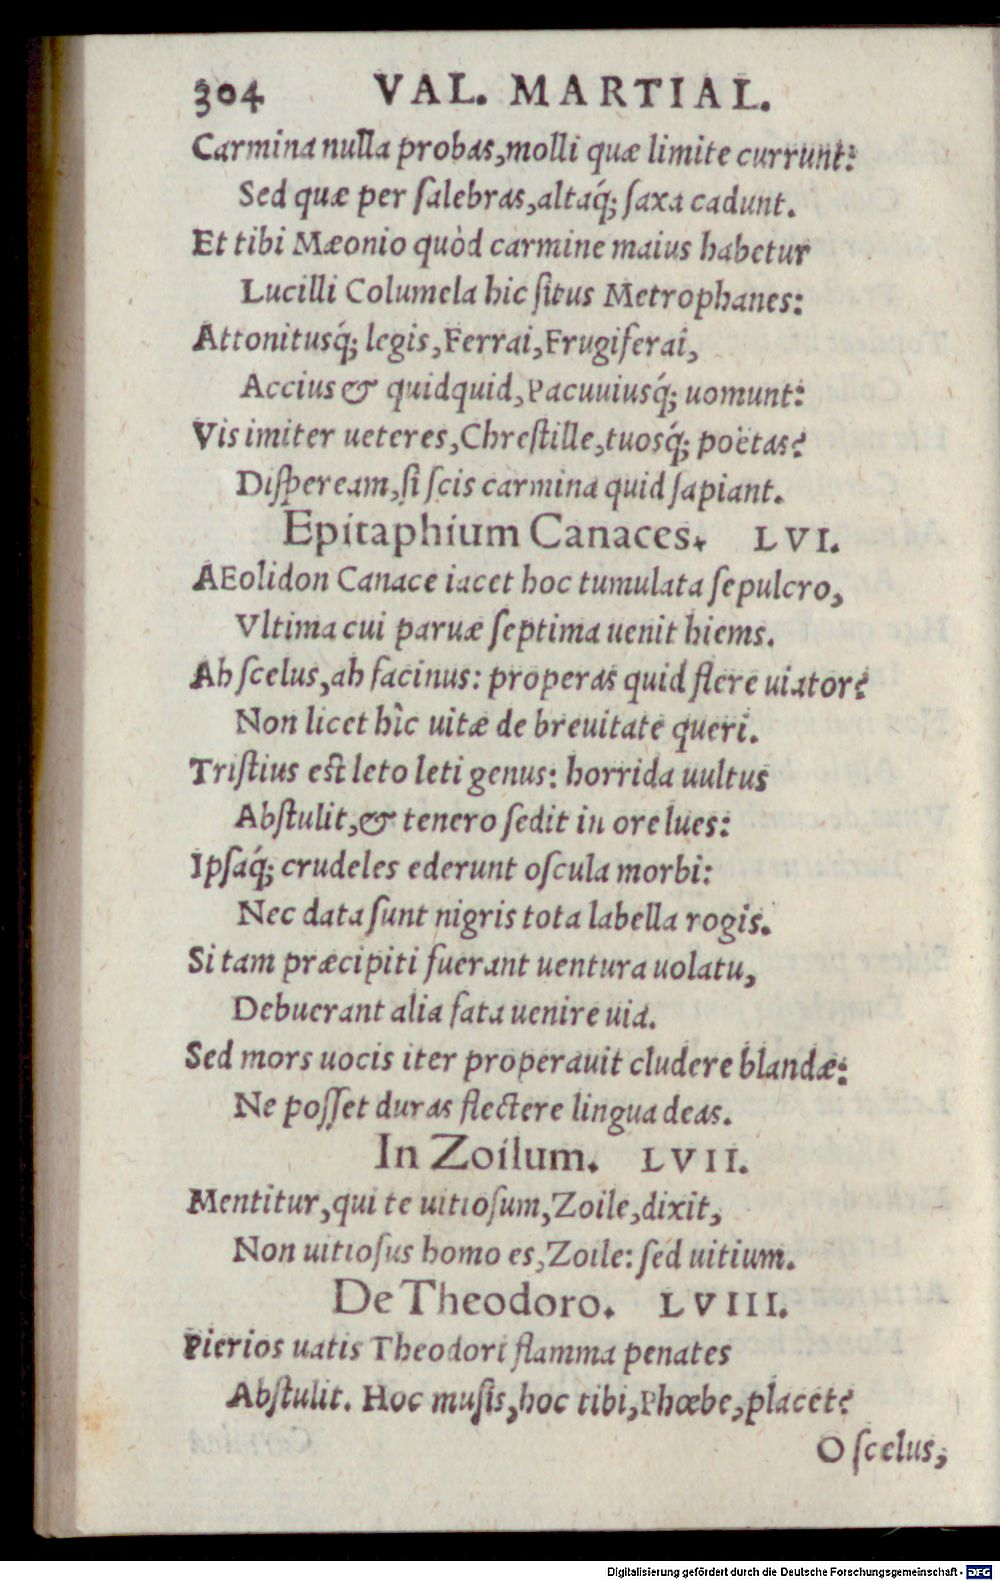 304 VAL. MARTIAL.
Carmina nulla probas, molli quæ limite currunt:
Sed quæ per ſalebras, altaq́; ſaxa cadunt.
Et tibi Mæonio quòd carmine maius habetur
Lucilli Columela hic ſitus Metrophanes:
Attonitusq́; legis, Ferrai, Frugiferai,
Accius & quidquid, Pacuuiusq́; uomunt:
Vis imiter ueteres, Chreſtille, tuosq́; poëtas?
Diſpeream, ſi ſcis carmina quid ſapiant.
Epitaphium Canaces. LVI.
AEolidon Canace iacet hoc tumulata ſepulcro,
Vltima cui paruæ ſeptima uenit hiems.
Ah ſcelus, ah facinus: properas quid flere uiator?
Non licet hîc uitæ de breuitate queri.
Triſtius eſt leto leti genus: horrida uultus
Abſtulit, & tenero ſedit in ore lues:
Ipſaq́; crudeles ederunt oſcula morbi:
Nec data ſunt nigris tota labella rogis.
Si tam præcipiti fuerant uentura uolatu,
Debuerant alia fata uenire uia.
Sed mors uocis iter properauit cludere blandæ:
Ne poſſet duras flectere lingua deas.
In Zoilum. LVII.
Mentitur, qui te uitioſum, Zoile, dixit,
Non uitioſus homo es, Zoile: ſed uitium.
De Theodoro. LVIII.
Pierios uatis Theodori flamma penates
Abſtulit. Hoc muſis, hoc tibi, Phœbe, placet?
O ſcelus,
Digitalisierung gefördert durch die Deutsche Forschungsgemeinschaft - DFG